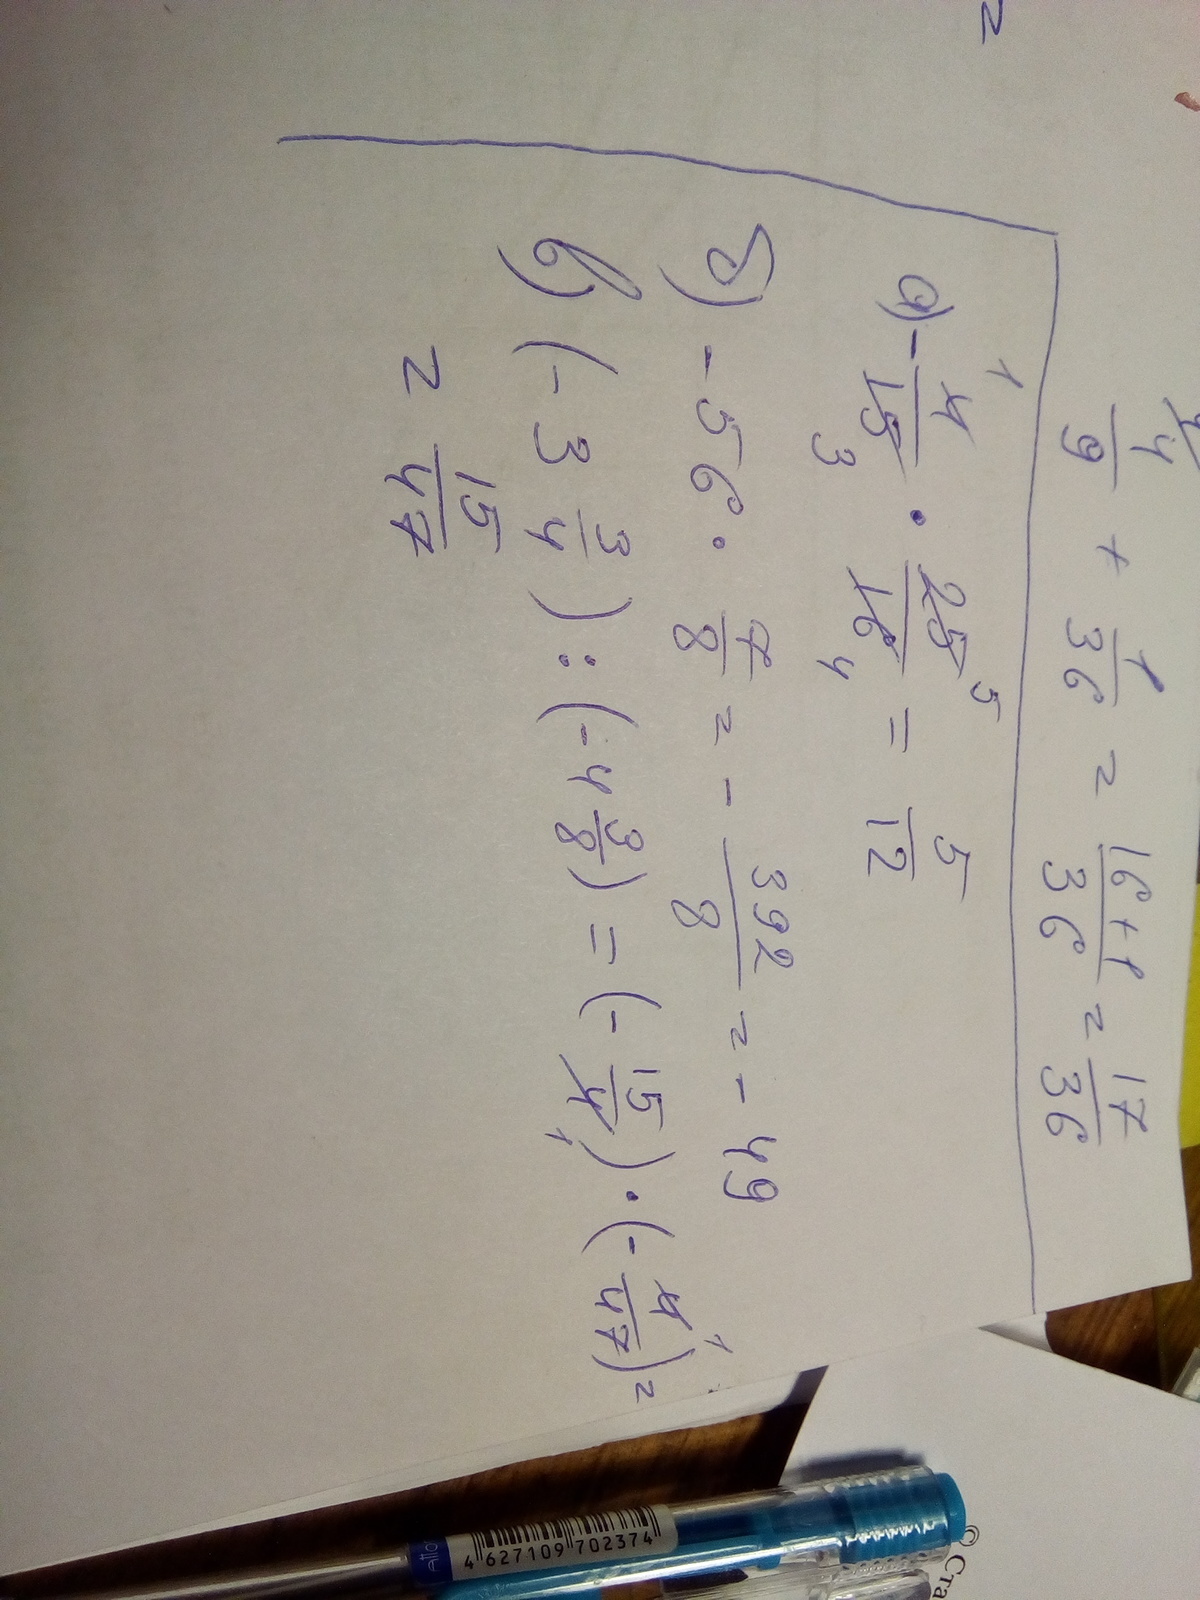 4/9 + 1/36 = 16+1/36 = 17/36
а) - 4/15 · 25/16 = 5/12
1 3 5 4
б) - 56 · 7/8 = - 392/8 = - 49
в) (-3 3/4) : (-4 3/8) = (- 15/4) · (- 4/47) =
1 1
= 15/47
4 627109 702374
© Ста